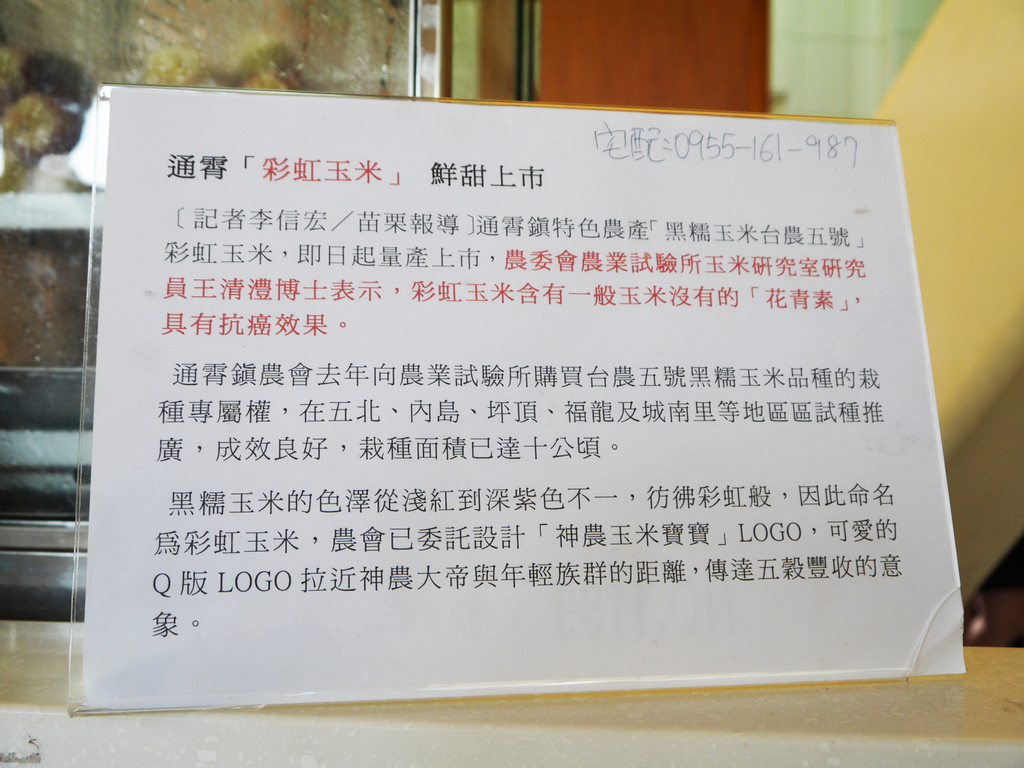 宅配:0955-161-987
通霄「彩虹玉米」 鮮甜上市
〔記者李信宏／苗栗報導〕通霄鎮特色農產「黑糯玉米台農五號」
彩虹玉米，即日起量產上市，農委會農業試驗所玉米研究室研究
員王清澧博士表示，彩虹玉米含有一般玉米沒有的「花青素」，
具有抗癌效果。
通霄鎮農會去年向農業試驗所購買台農五號黑糯玉米品種的栽
種專屬權，在五北、內島、坪頂、福龍及城南里等地區區試種推
廣，成效良好，栽種面積已達十公頃。
黑糯玉米的色澤從淺紅到深紫色不一，彷彿彩虹般，因此命名
為彩虹玉米，農會已委託設計「神農玉米寶寶」LOGO，可愛的
Q 版 LOGO 拉近神農大帝與年輕族群的距離，傳達五穀豐收的意
象。